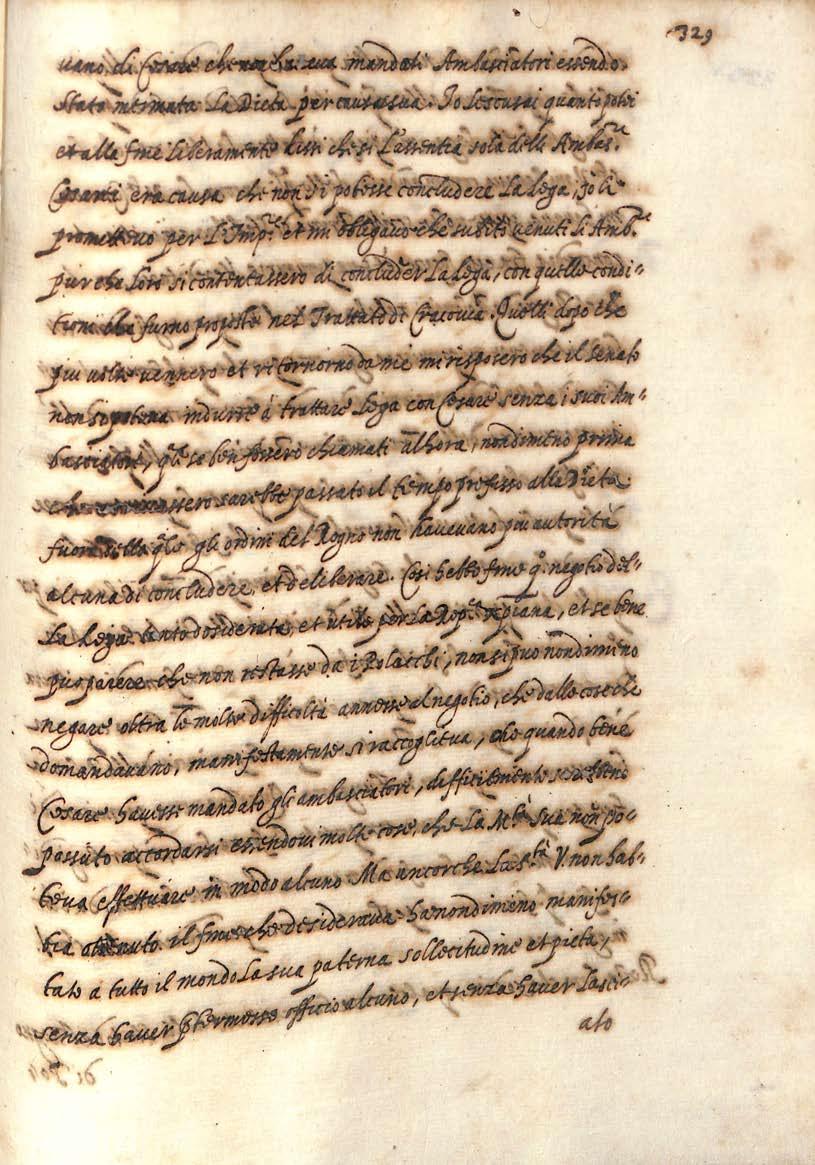 329
vano di Cesare che non havea mandati Ambasciatori essendo
stata intimata La Dieta per causa sua. Io le scusai quanto potei
et alla fine liberamente dissi che se L'assentia sola delli Ambas.ri
Cesarei era causa che non si potesse concludere La lega, Io li
promettevo per L'Imp.re et mi obligavo che subito venuti li Amb.ri
pur che Loro si contentassero di concluder La lega, con quelle condi=
tioni che furno proposte nel Trattato di Cracovia. Quelli dopo che
piu volte vennero et ritornorno da me mi risposero che il senato
non si poteva indurre à trattare Lega con Cesare senza i suoi Am=
basciatori, q.li se ben fossero chiamati alhora, nondimeno prima
che arrivassero sarebbe passato il tempo prefisso alla Dieta
fuora della q.le gli ordini del Regno non havevano piu autorità
alcuna di concludere, et deliberare. Cosi hebbe fine q.o negotio del=
La Lega tanto desiderata, et utile per La Rep.ca xpiana, et se bene
puo parere che non restasse da i Polacchi, non si puo nondimeno
negare oltra le molte difficoltà annesse al negotio, che dalle cose che
domandavano, manifestamente si raccoglieva, che quando bene
Cesare havesse mandato gli ambasciatori, difficilmente sarebbono
possuto accordarsi essendovi molte cose, che La M.tà sua non po=
teva effettuare in modo alcuno. Ma ancorche La S.tà V. non hab=
bia ottenuto il fine che desiderava ha nondimeno manifes=
tato à tutto il mondo La sua paterna sollecitudine et pietà,
senza haver p̄termesso officio alcuno, et senza haver Lasci=
ato